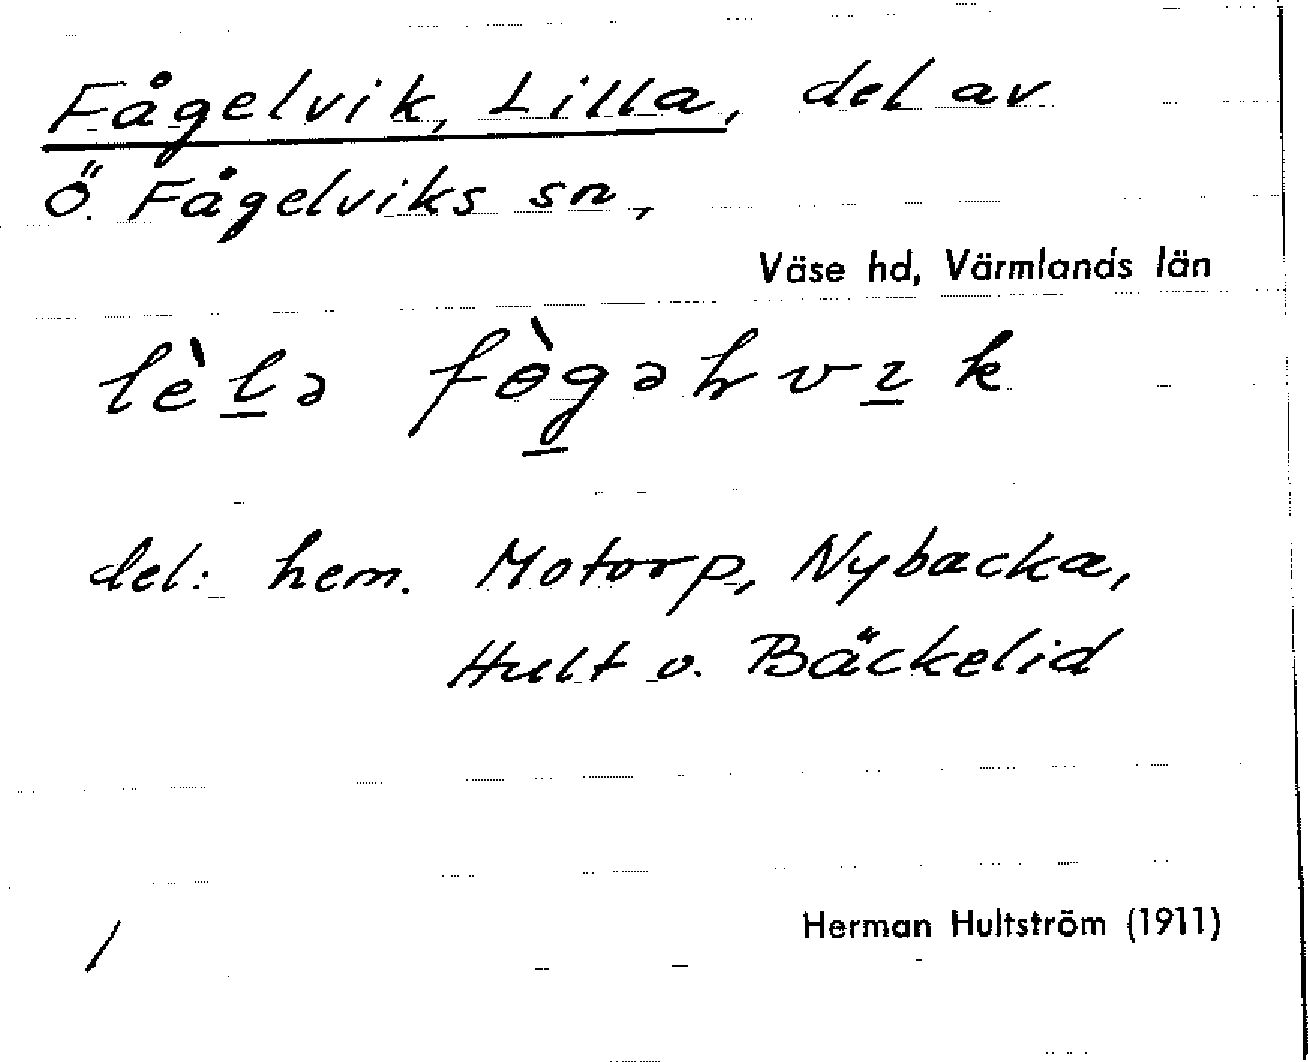 Fågelvik, Lilla, del av
Ö. Fågelviks sn,
Väse hd, Värmlands län
lèlə fògəɫvɪk
del: hem. Motorp, Nybacka,
Hult o. Bäckelid
/
Herman Hultström (1911)